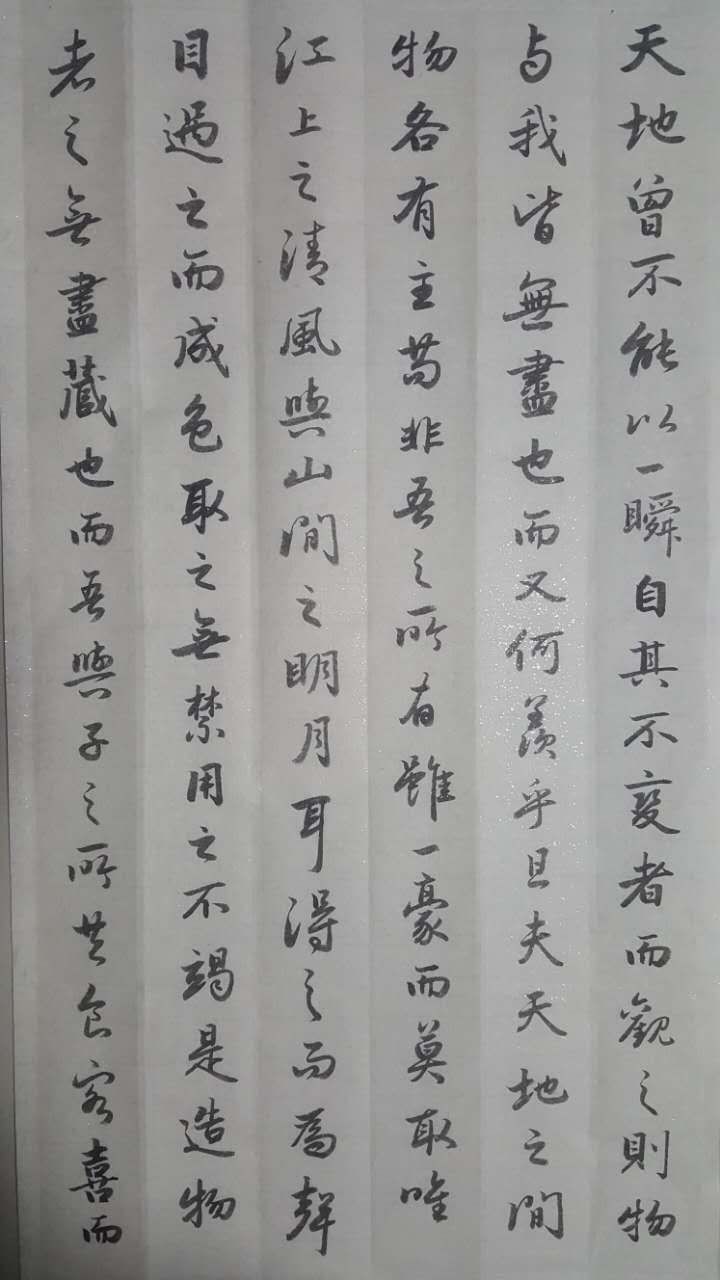 天地曾不能以一瞬自其不變者而觀之則物
与我皆無盡也而又何羨乎且夫天地之間
物各有主苟非吾之所有雖一豪而莫取唯
江上之清風與山間之明月耳得之而為聲
目遇之而成色取之無禁用之不竭是造物
者之無盡藏也而吾與子之所共食客喜而